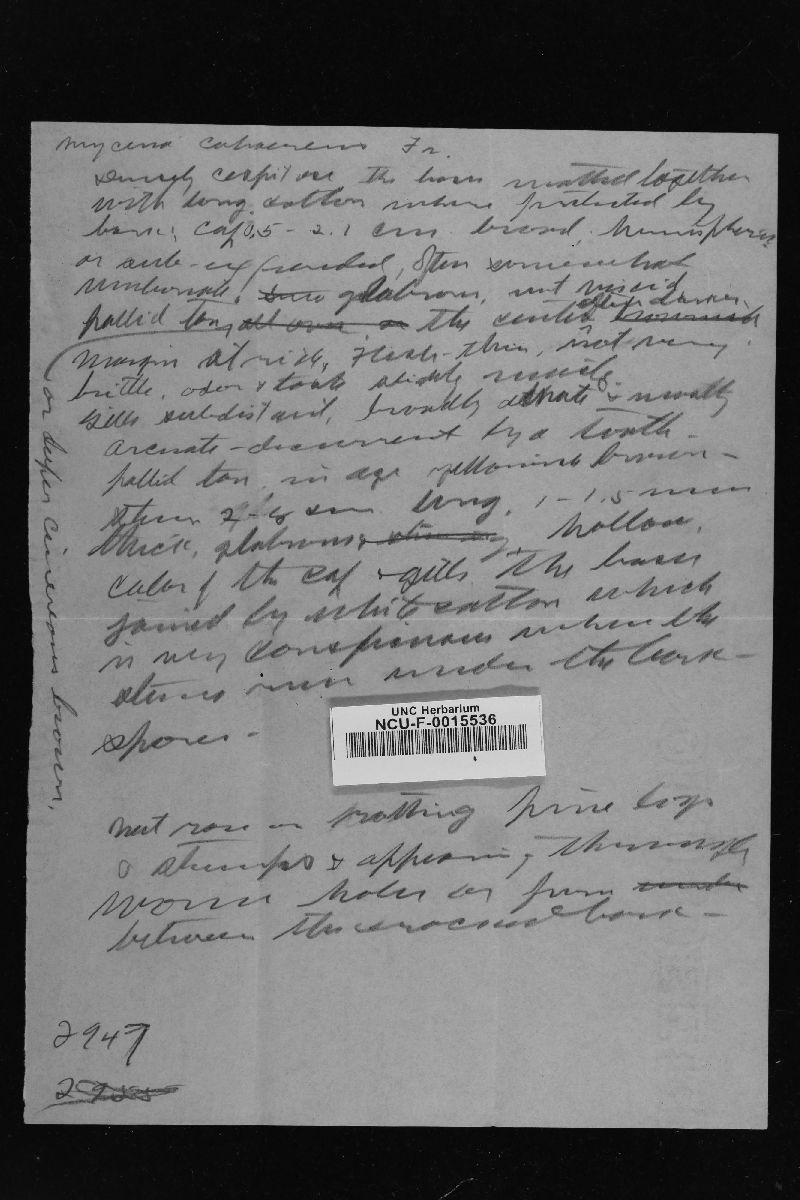 Mycena cohaerens Fr.
densely cespitose the bases matted together
with long cotton where protected by
bark; Cap 0.5 - 2.1 cm. broad, hemispheric
or sub-expanded, often somewhat
umbonate, glabrous, not viscid
pallid tan, all over the center often darker,
margin striate, Flesh-thin, not very
brittle, odor & taste slightly musty
Gills subdistant, broadly adnate & mostly
arcuate-decurrent by a tooth -
pallid tan in age yellowish brown -
Stem 2-6 cm. long, 1-1.5 mm
thick, glabrous, hollow,
color of the cap & gills. The bases
joined by white cotton which
is very conspicuous where the
stems run under the bark -
spores -
or deeper cinereous brown,
UNC Herbarium
NCU-F-0015536
Not rare on rotting pine logs
& stumps & appearing through
worm holes or from under
between the wood and bark -
2947
2955